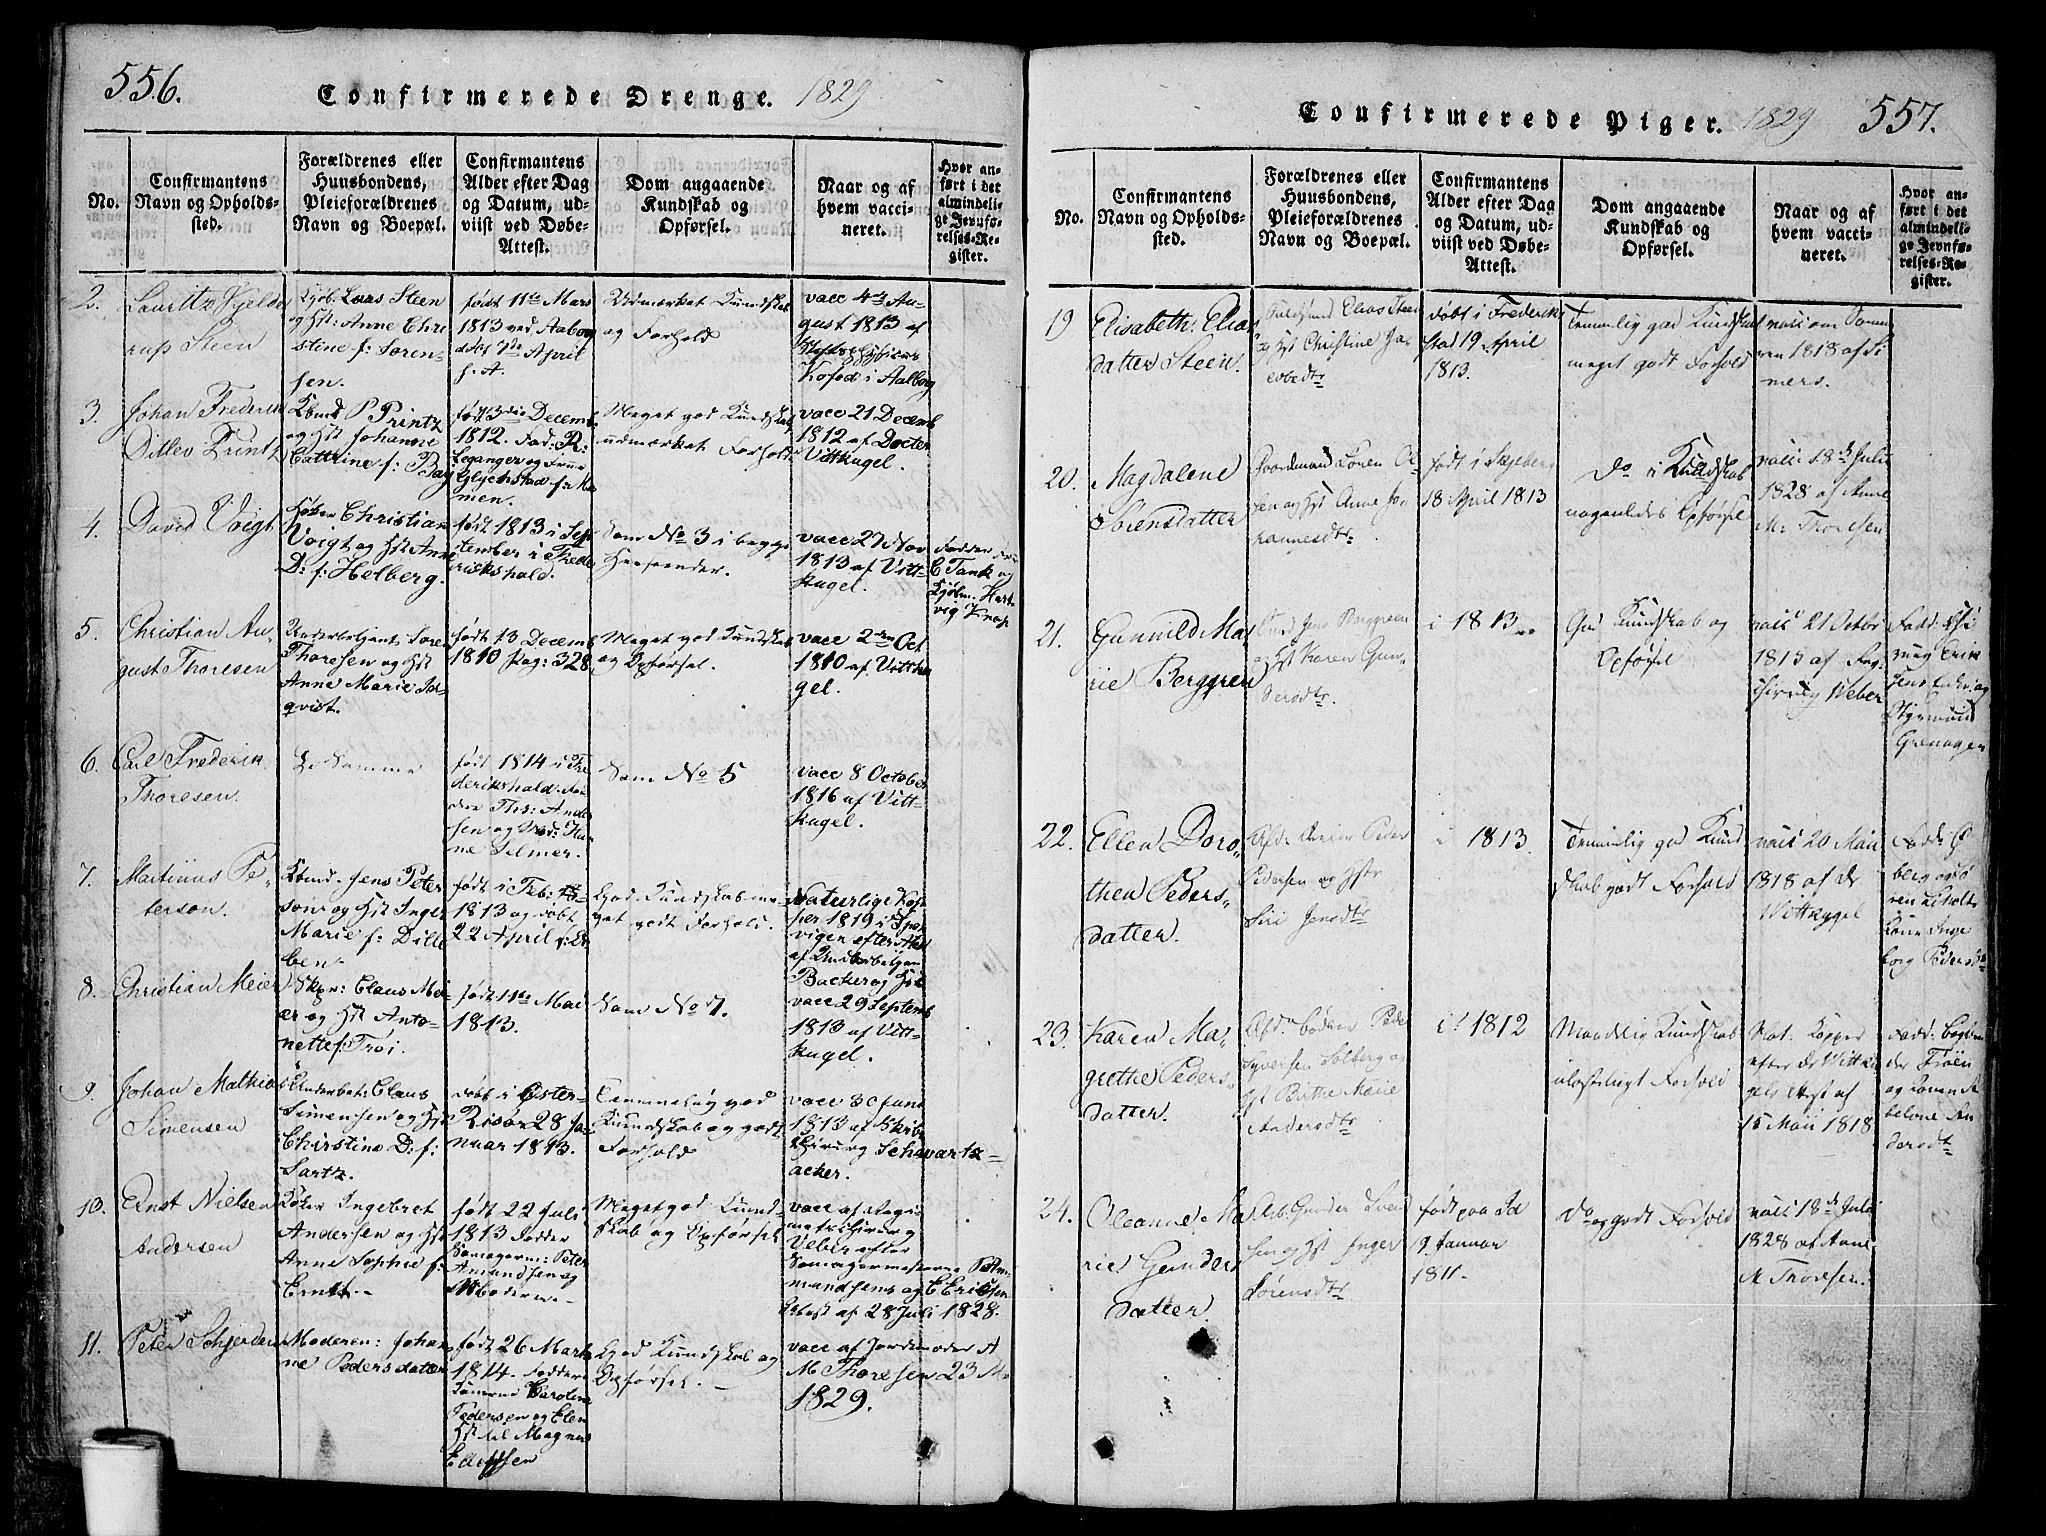 556.
Confirmerede Drenge. 1829
No.
Confirmantens
Navn og Opholds-
sted.
Forældrenes eller
Huusbondens,
Pleieforældrenes
Navn og Boepæl.
Confirmantens
Alder efter Dag
og Datum, ud-
viist ved Døbe-
Attest.
Dom angaaende
Kundskab og
Opførsel.
Naar og af
hvem vacci-
neret.
Hvor an-
ført i det
almindeli-
ge Jevnfø-
relses-Re-
gister.
2.
Lauritz
Steen
Lars Steen
og Hst: Anne Chri
stine f: Soren-
sen.
født 11te Mars
1813 ved Aaborg
April
Udmærket Kundskab
og Forhold
vacc 4de Au-
gust 1813 af
Kofod i Aalborg
3.
Johan Frederik
Ditlev Printz
Kbmd P Printz
og Hst Johanne
Cattrine f: Bay
født 3die Decemb.
1812. Fad: R:
Leganger og Frue
Glychstad f:
men.
Meget god Kundskab
udmærket Forhold
vacc 21 Decemb
1812 af Docter
Vittkugel.
4.
David Voigt
Christian
Voigt og Hst Anne
D: f: Helberg.
født 1813 i Sep
tember i Frede
rikshald.
Som No 3 i begge
Henseender.
vacc 27 Nov
1813 af Vitt-
kugel.
Fadder Frue
C Tank og
Kjøbm. Hart-
vig Knap
5.
Christian Au-
gust Thoresen
Underbetjent Sore
Thoresen og Hst
Anne Marie
qvist.
født 13 Decemb
1810 Pag: 328
Meget god Kundskab
og Opførsel.
vacc 2den Oct
1810 af Vittku
gel.
6.
Carl Frederik
Thoresen.
De Samme
født 1814 i Fre
derikshald.
Ths: Ande
sen og Mad: Ha
ne Selmer.
Som No 5
vacc 8 October
1816 af Vitt-
kugel.
7.
Martinus Pe-
terson.
Kbmd. Jens Peter
son og Hst Inger
Marie f: Dille
ben.
født i Feb:
1813 og døbt
22 April
God Kundskab me-
get godt Forhold.
Naturlige Kop
per 1819 i Spe
vigen efter Atest
af Underbetjen
Backer og Hst
8.
Christian Meier
Skpr: Claus Mei
er og Hst Anto-
nette f: Troi.
født 11te Mai
1813.
Som No 7.
vacc 29 Septemb
1813 af Vitt-
kugel.
9.
Johan Mathias
Simensen
Underbet: Claus
Simensen og Hst
Christine D: f:
Sartz.
døbt i Øster-
Risør 28 Ja-
nuar 1813.
Temmelig god
Kundskab og godt
Forhold
vacc 30 Juni
1813 af
Chirurg Schwartz=
acker.
10.
Ernst Nielsen
Andersen
Ingebret
Andersen og Hst
Anne Sophie f:
Ernst.-
født 22 Juli
1813 Fadder
Peter
Amundsen og
Moderen.-
Meget god Kund-
skab og Opførsel
vacc af Regi-
ments Chirurg
Veber efter
mandsens og E Ericksen
Atest af 28 Juli 1828.
11.
Peter Schjerden
Moderen: Johan
ne Pedersdatter
født 26 Marts
1814. Faddere
Caroline
Pedersen og Elen
Hst til Magnus
God Kundskab og
Opførsel.-
vacc af Jordemoder A
M Thoresen 23 M
1829.
Confirmerede Piger. 1829 557.
No.
Confirmantens
Navn og Opholds-
sted.
Forældrenes eller
Huusbondens,
Pleieforældrenes
Navn og Boepæl.
Confirmantens
Alder efter Dag
og Datum, ud-
viist ved Døbe-
Attest.
Dom angaaende
Kundskab og
Opførsel.
Naar og af
hvem vacci-
neret.
Hvor an-
ført i det
almindeli-
ge Jevnfø-
relses-Re-
gister.
19
Elisabeth Elias
datter Steen.
Elias Steen
og Hst Christine Ja-
cobsdtr
døbt i Frederik
stad 19 April
1813.
Temmelig god Kundskab
meget godt Forhold
vacc om Somm
ren 1818 af Si
mers.
20.
Magdalene
Sörensdatter
Gaardmand Sören Ol-
sen og Hst Anne Jo-
hannesdtr.
født i Skjeberg
18 April 1813
Do i Kundskab
nogenledes Opførsel
vacc 18de Juli
1828 af Anne
M: Thoresen
21.
Gunnild Ma-
rie Berggren
Jens Berggreen
og Hst Karen Gun-
dersdtr.
i 1813
God Kundskab og
Opførsel
vacc 21 Octbr
1815 af Reg:
Chirurg Weber
Fadd:
Styrmand
Grenager
22.
Ellen Doro-
thea Peders-
datter.
Afd. Peder
Pedersen og Hstr
Siri Jensdtr
i 1813.
Temmelig god Kund
skab godt Forhold
vacc 20 Mai
1818 af Dr
Wittkugel
Fadd: Ø
berg og Sö
ren
Kone Inge
borg Pedersdtr
23.
Karen Ma-
grethe Peders-
datter.
Afd. Bödker Peder
Syversen Solberg og
Hst Birthe Marie
Andersdtr
i 1812
Maadelig Kundskab
ulasteligt Forhold
Nat. Kopper
efter Dr Wittku
gels Atest af
15 Mai 1818
Fadd:
og Konen A
belone An
dersdtr
24.
Oleanne Ma
rie Gunders
datter.
Arb. Gunder Svend
sen og Hst Inger
Sörensdtr
født paa Id
19 Januar
1811.
Do og godt Forhold
vacc 18de Juli
1828 af Anne
M Thoresen.